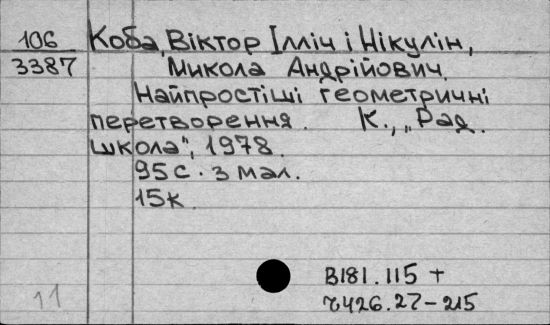 106
3387
Коба, Віктор Ілліч і Нікулін,
Микола Андрійович.
Найпростіші геометричні
перетворення. К., „Рад.
школа", 1978.
95 с. з мал.
15к.
В181.115 +
Ч426.27-215
11